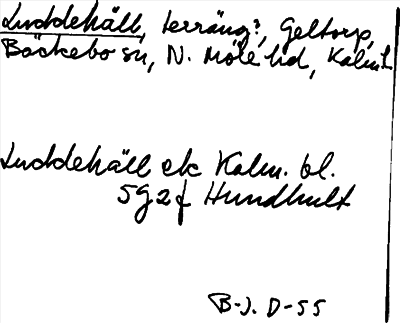 Luddehäll, terräng?, Geltorp,
Bäckebo sn, N. Möre hd, Kalm. l
Luddehäll ek Kalm. bl.
5g2f Hundhult
B-J. D-55